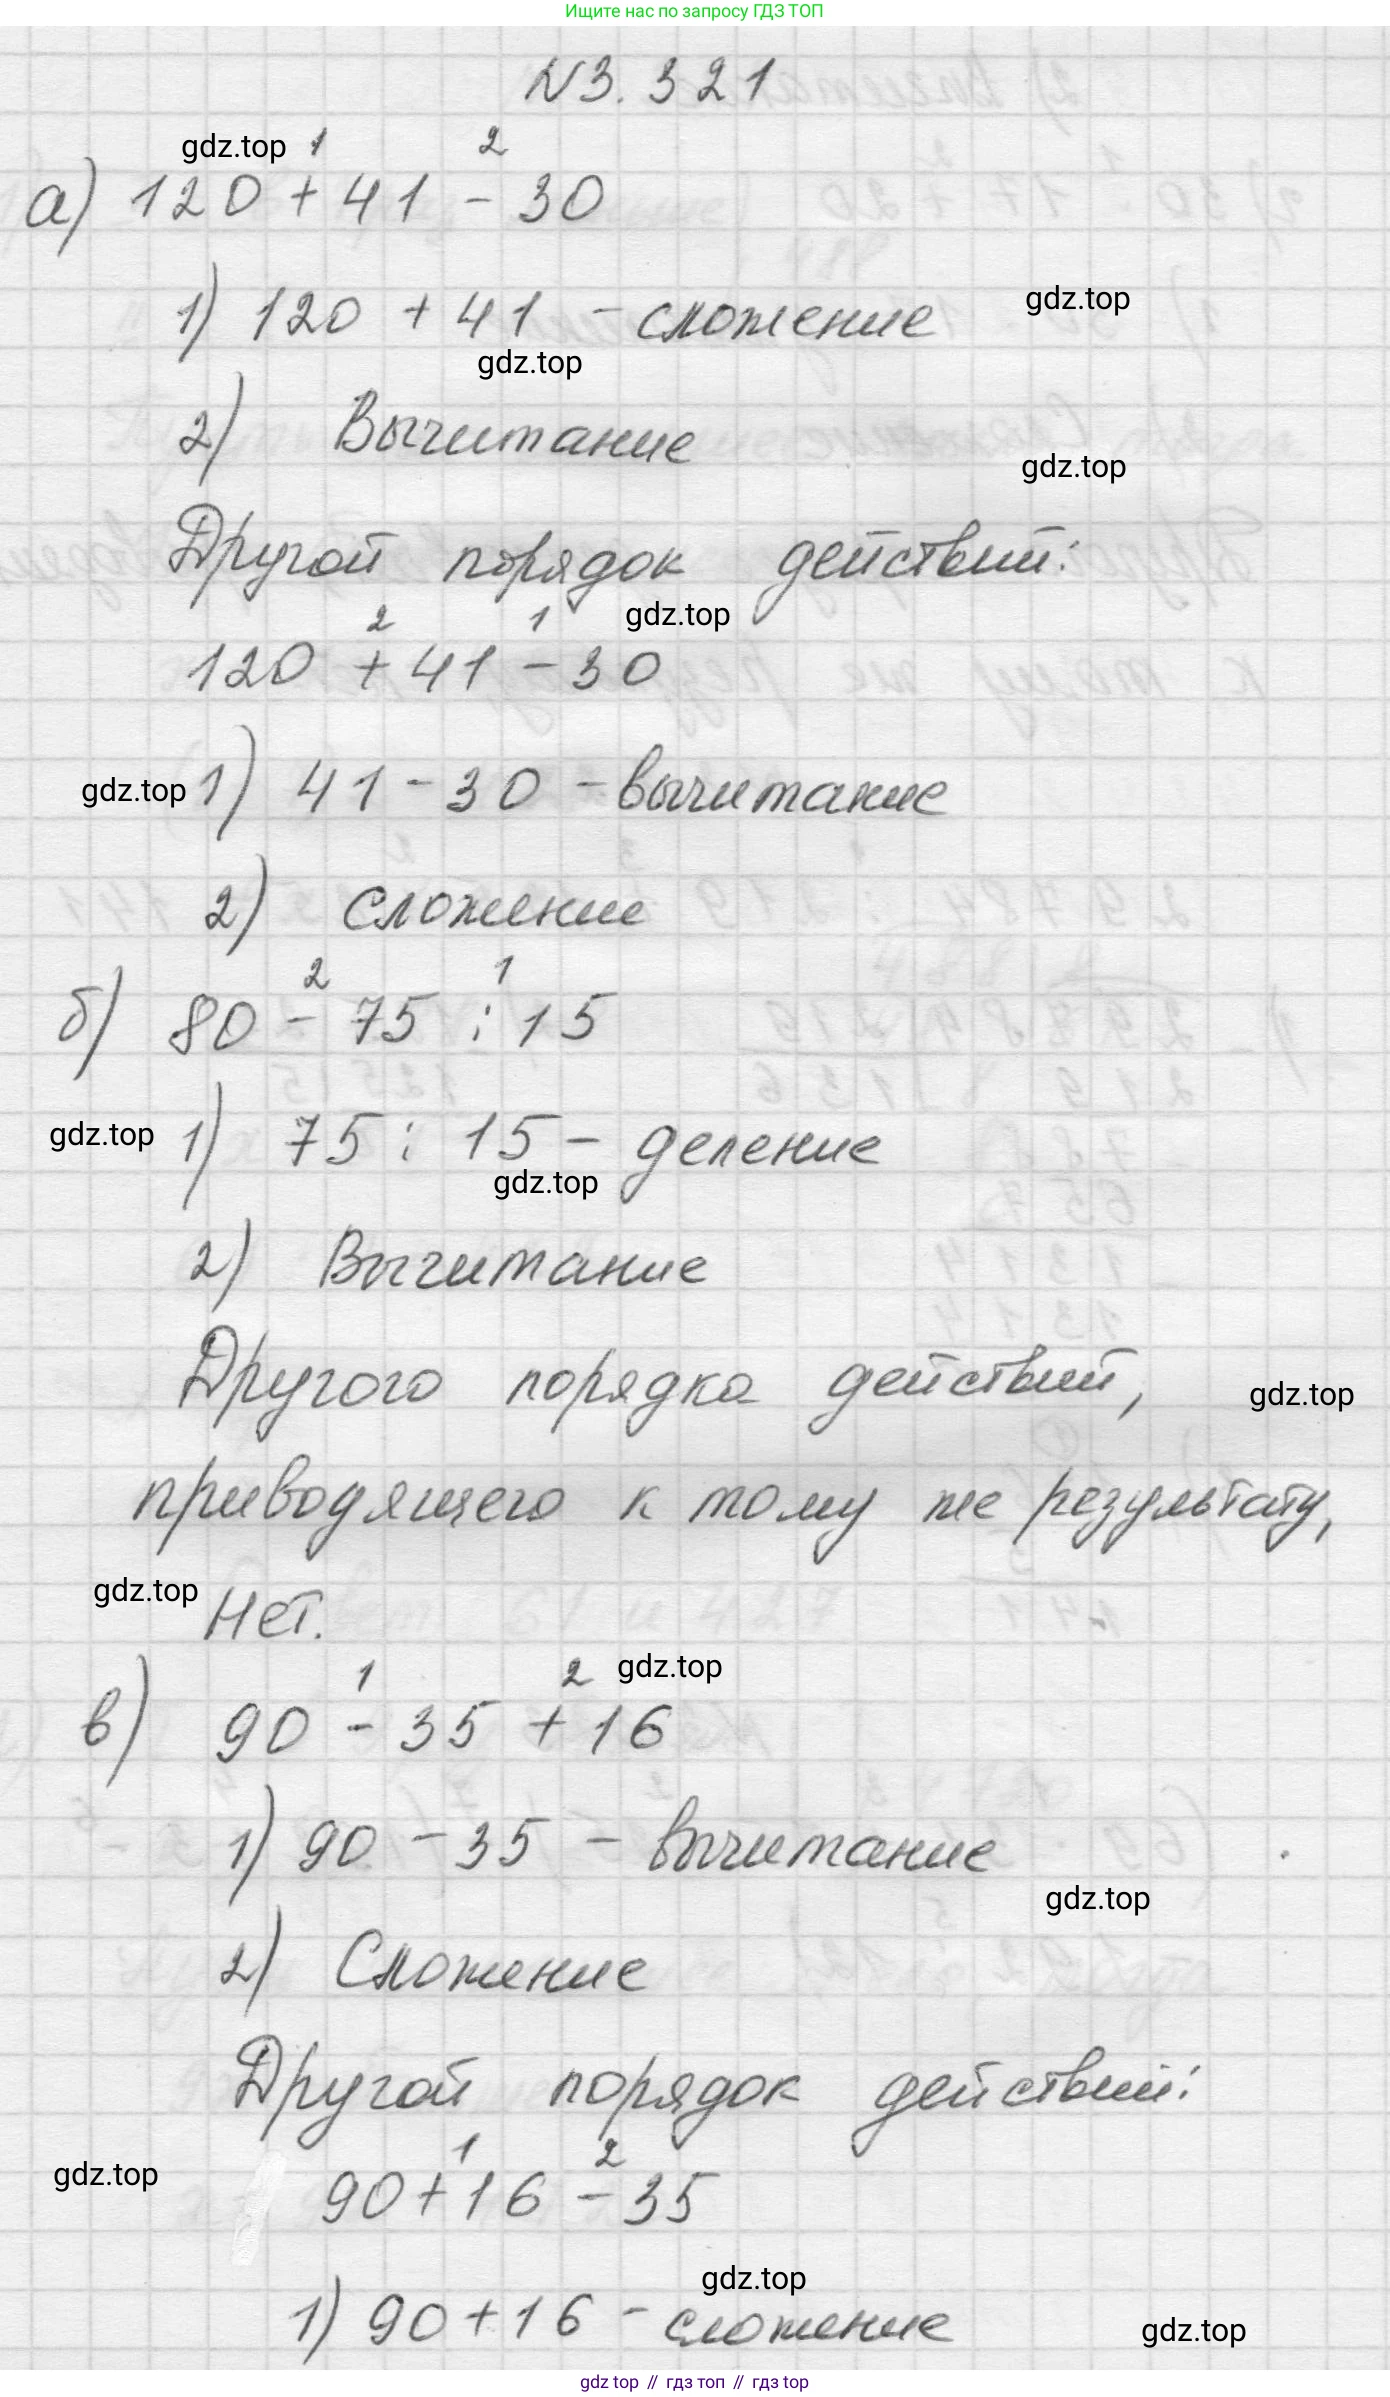 Ищите нас по запросу ГДЗ ТОП
N3.321
gdz.top 1 2
а) 120 + 41 - 30
1) 120 + 41 - сложение gdz.top
gdz.top
2) Вычитание
gdz.top
Другой порядок действий:
2 1 gdz.top
120 + 41 - 30
gdz.top 1) 41 - 30 - вычитание
2) сложение
2 1
б) 80 - 75 : 15
gdz.top 1) 75 : 15 - деление
gdz.top
2) Вычитание
Другого порядка действий, gdz.top
приводящего к тому же результату,
gdz.top нет.
1 2 gdz.top
в) 90 - 35 + 16
1) 90 - 35 - вычитание
gdz.top
2) Сложение
Другой порядок действий:
1 2
gdz.top 90 + 16 - 35
gdz.top
1) 90 + 16 - сложение gdz.top
gdz top // гдз топ // гдз top